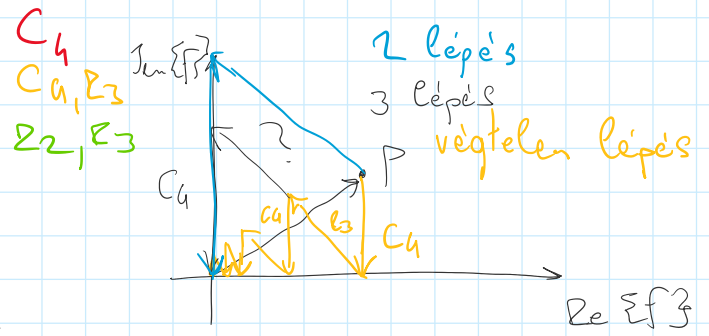 C4
C4, R3
R2, R3
Im{f}
2 lépés
3 lépés
végtelen lépés
?
P
C4
C4
R3
C4
Re{f}